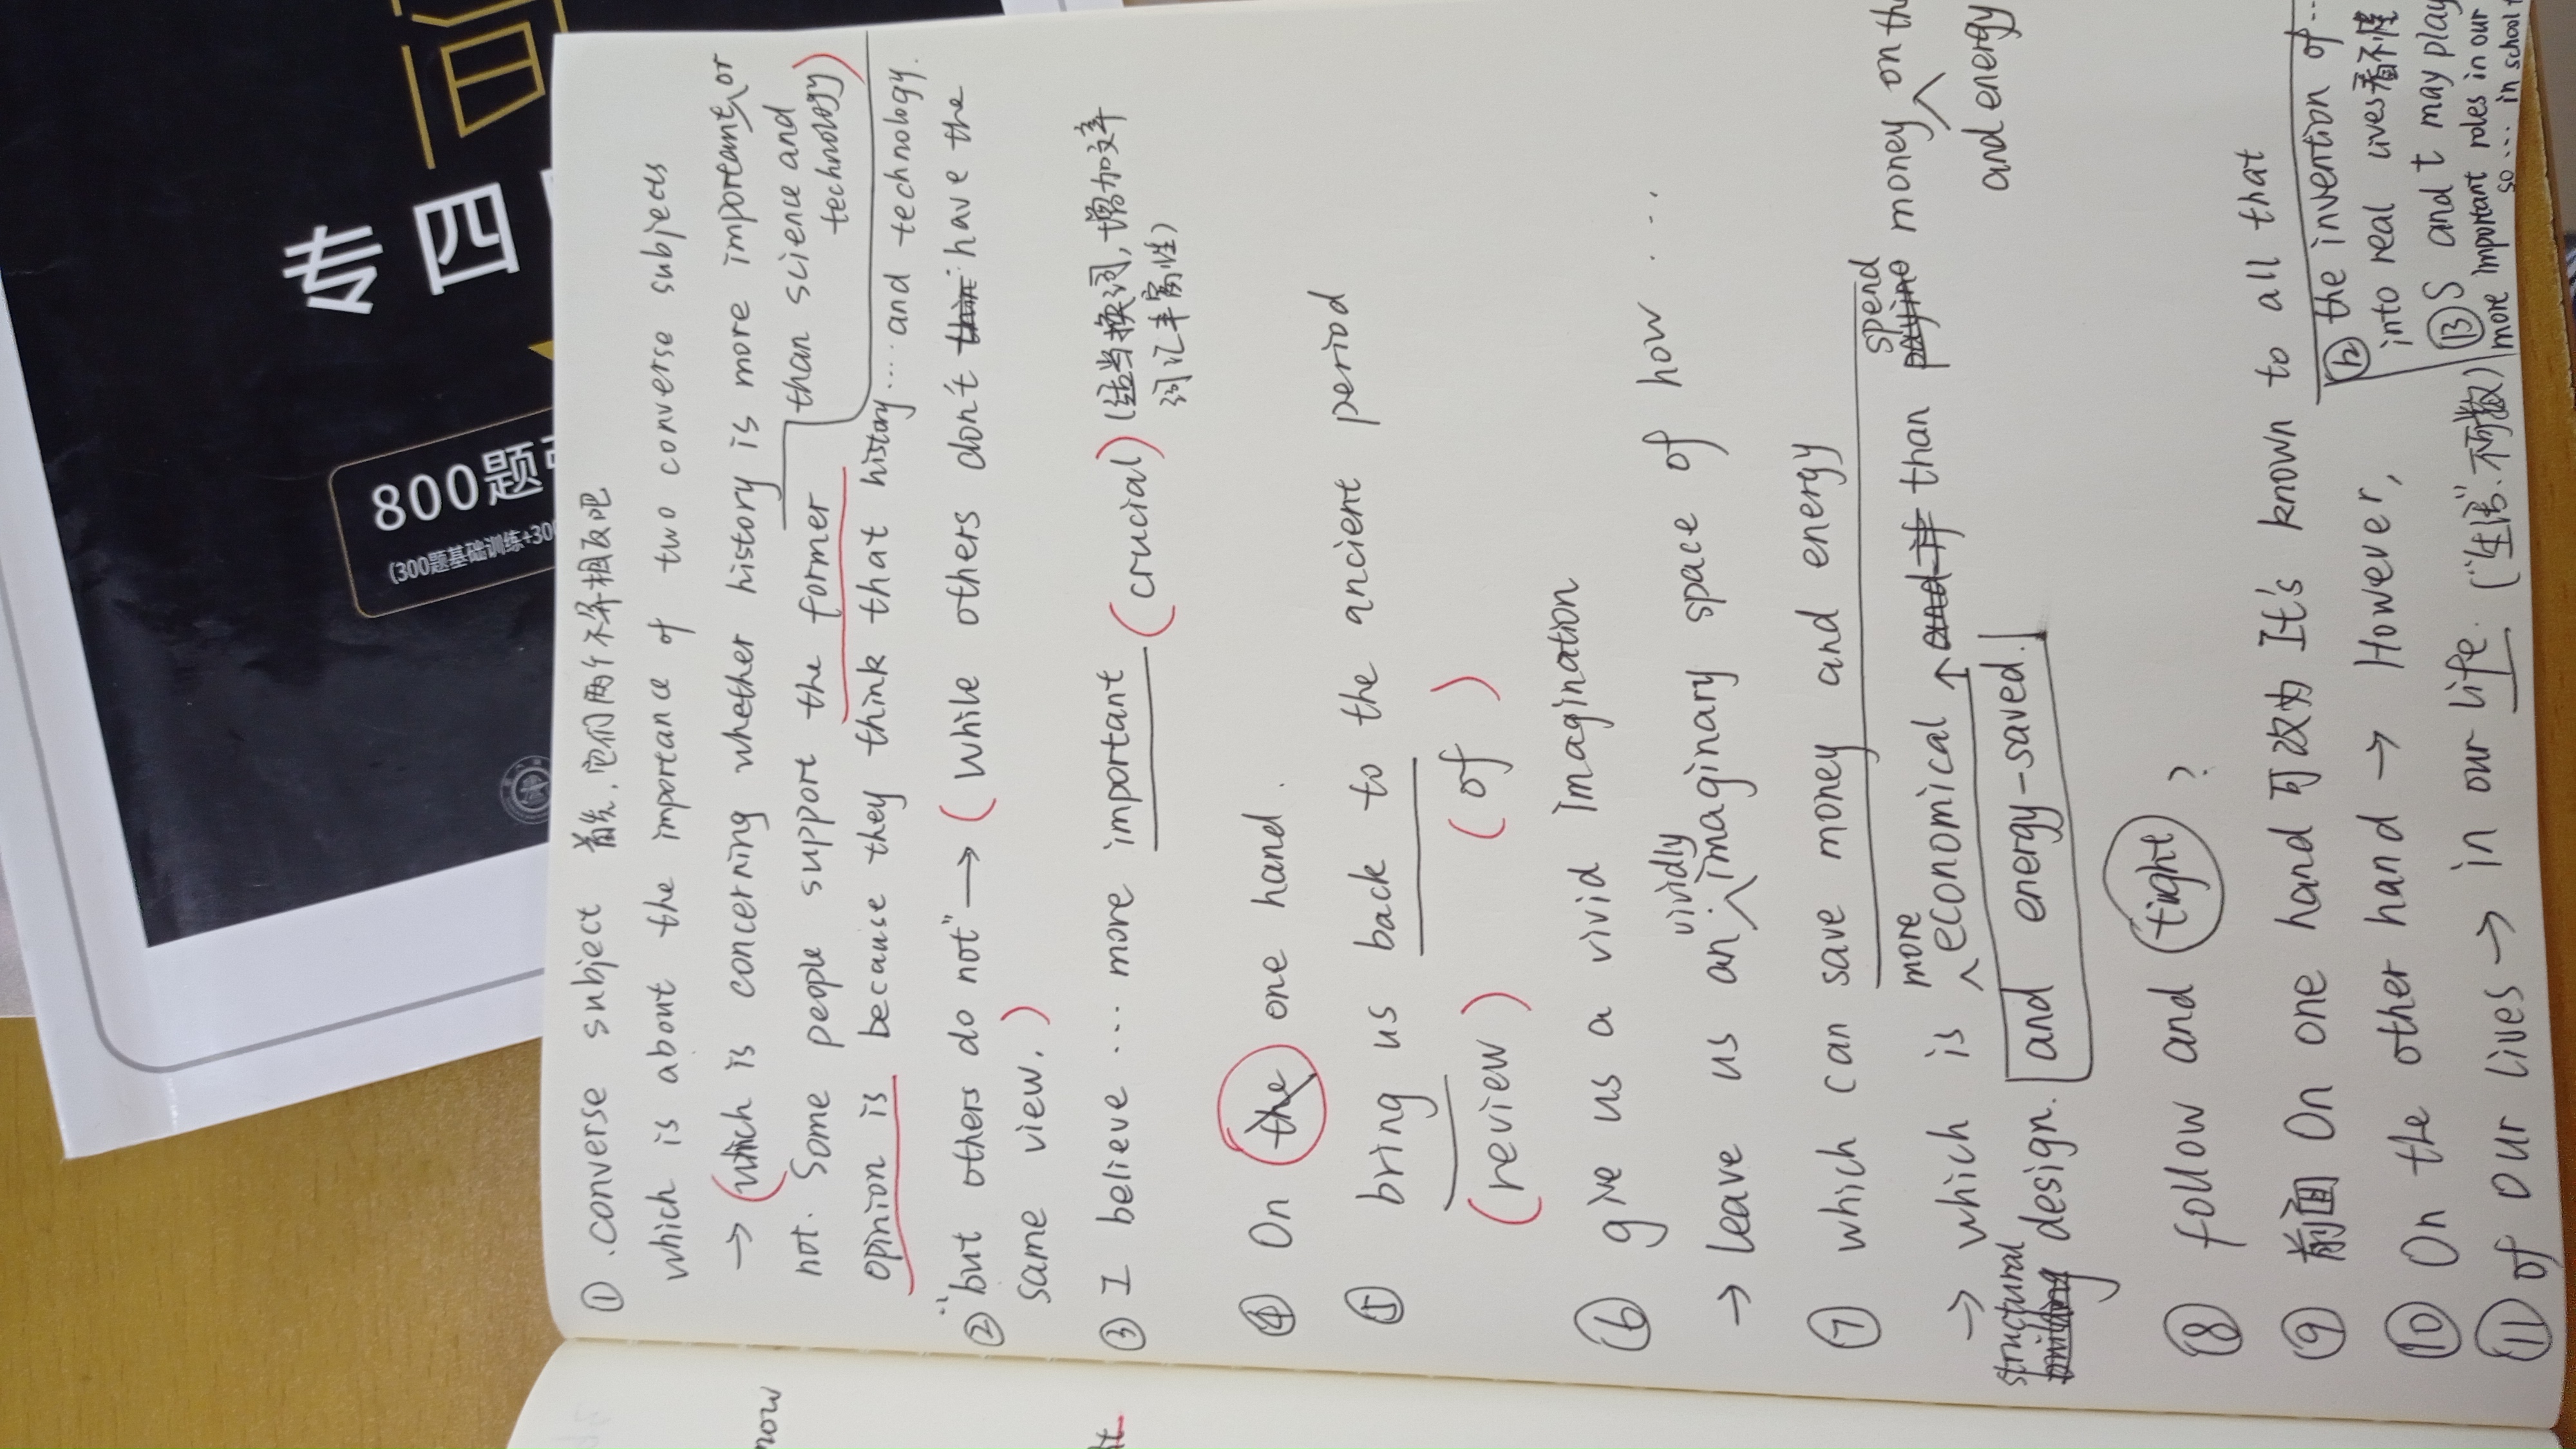 专四
800题
(300题基础训练+30
now
① .converse subject 首先,它们两个不算相反吧
which is about the importance of two converse subjects
→ (which is concerning whether history is more important, or
not. Some people support the former
than science and
technology)
opinion is because they think that history.... and technology.
② "but others do not" → ( While others don't thin have the
same view. )
③ I believe ... more important (crucial) (适当换词, 增加文章
词汇丰富性)
④ On the one hand.
⑤ bring us back to the ancient period
(review) (of)
⑥ give us a vivid imagination
vividly
→ leave us an imaginary space of how ....
⑦ which can save money and energy
more spend
→ which is economical and if than paying money on th
and energy
structural
building design. and energy-saved.
⑧ follow and tight ?
⑨ 前面 On one hand 可改为 It's known to all that
⑩ On the other hand → However,
⑪ of our lives → in our life. ("生活"不可数)
⑫ the invention of ..
into real lives看不懂
⑬ S and t may play
more important roles in our
so ... in school